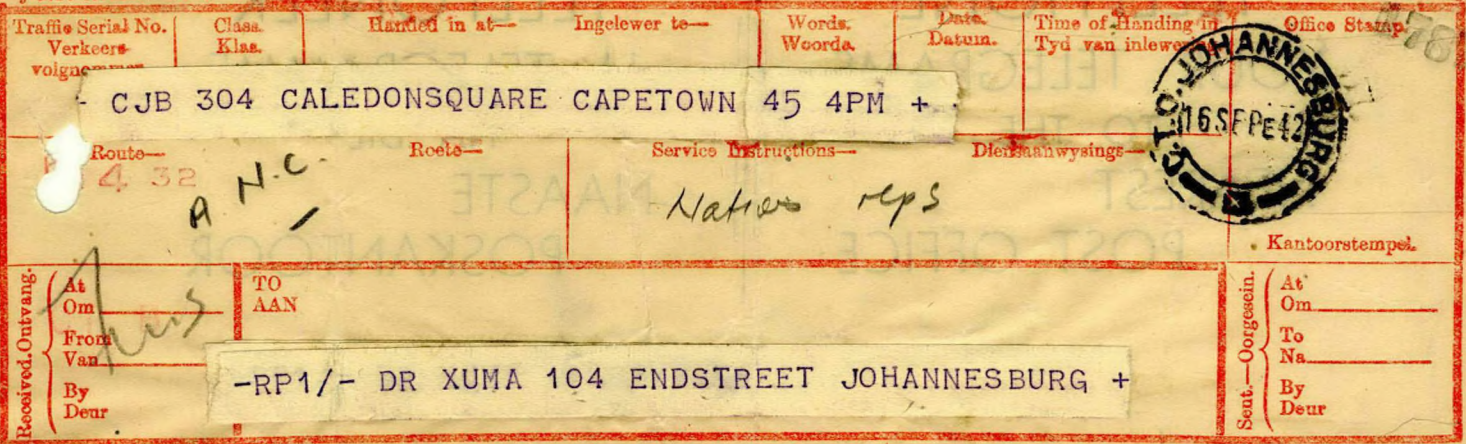 Traffic Serial No.
Verkeers-
volgnommer
Class.
Klas.
Handed in at— Ingelewer te—
Words.
Woorde.
Date.
Datum.
Time of Handing in
Tyd van inlewering
Office Stamp.
78
- CJB 304 CALEDONSQUARE CAPETOWN 45 4PM +
C.T.O. JOHANNESBURG
16 SEP PE 42
Route— Roete—
4 32
A.N.C.
Service Instructions— Diensaanwysings—
Natives reps
Kantoorstempel.
Received.Ontvang.
At
Om
From
Van
By
Deur
TO
AAN
-RP1/- DR XUMA 104 ENDSTREET JOHANNESBURG +
Sent.—Oorgesein.
At
Om
To
Na
By
Deur